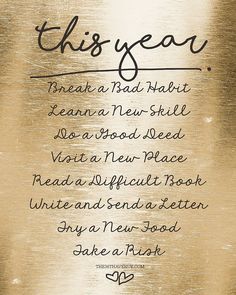 this year.
Break a Bad Habit
Learn a New Skill
Do a Good Deed
Visit a New Place
Read a Difficult Book
Write and Send a Letter
Try a New Food
Take a Risk